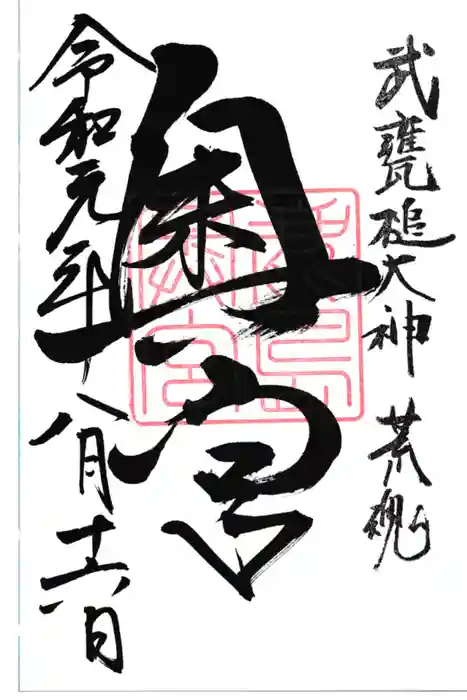 武甕槌大神 荒魂
奥宮
令和元年八月十六日